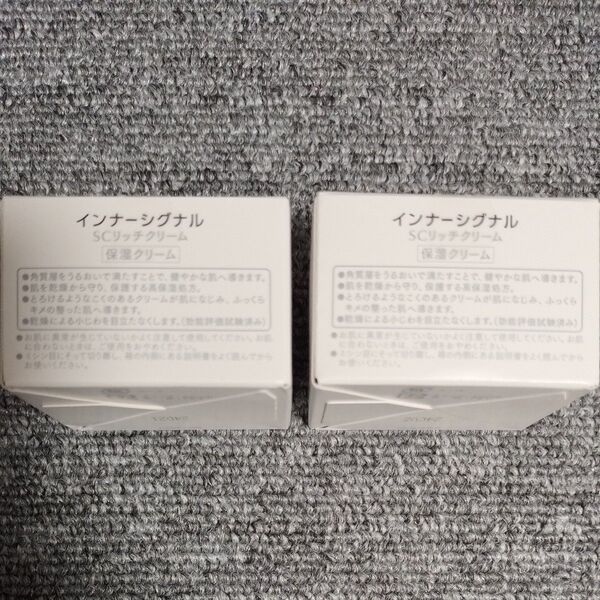 インナーシグナル
SCリッチクリーム
保湿クリーム
●角質層をうるおいで満たすことで、健やかな肌へ導きます。
●肌を乾燥から守り、保護する高保湿処方。
●とろけるようなこくのあるクリームが肌になじみ、ふっくら
キメの整った肌へ導きます。
●乾燥による小じわを目立たなくします。(効能評価試験済み)
●お肌に異常が生じていないかよく注意して使用してください。お肌
に合わないときは、ご使用をおやめください。
●ミシン目にそって切り離し、箱の内側にある説明書をよく読んでから
お使いください。
インナーシグナル
SCリッチクリーム
保湿クリーム
●角質層をうるおいで満たすことで、健やかな肌へ導きます。
●肌を乾燥から守り、保護する高保湿処方。
●とろけるようなこくのあるクリームが肌になじみ、ふっくら
キメの整った肌へ導きます。
●乾燥による小じわを目立たなくします。(効能評価試験済み)
●お肌に異常が生じていないかよく注意して使用してください。お肌
に合わないときは、ご使用をおやめください。
●ミシン目にそって切り離し、箱の内側にある説明書をよく読んでから
お使いください。